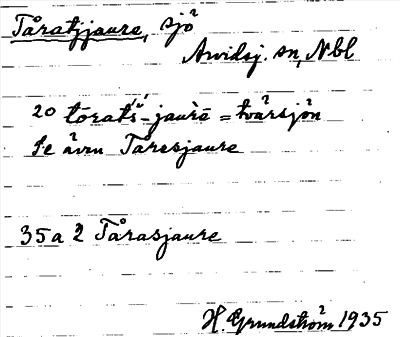 Tåratjjaure, sjö
Arvidsj. sn, Nbl
20 tōratš-jaurē = tvärsjön
Se även Tåresjaure
35 a 2 Tårasjaure
H. Grundström 1935